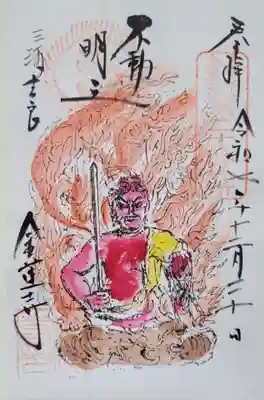 奉拝
令和七年十一月二十日
不動
明王
三河吉良
金蓮寺